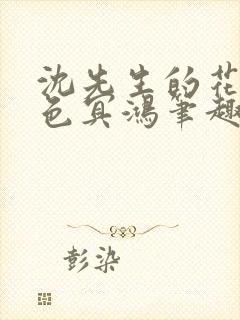 沈先生的花
色冥鸿笔趣
彭染